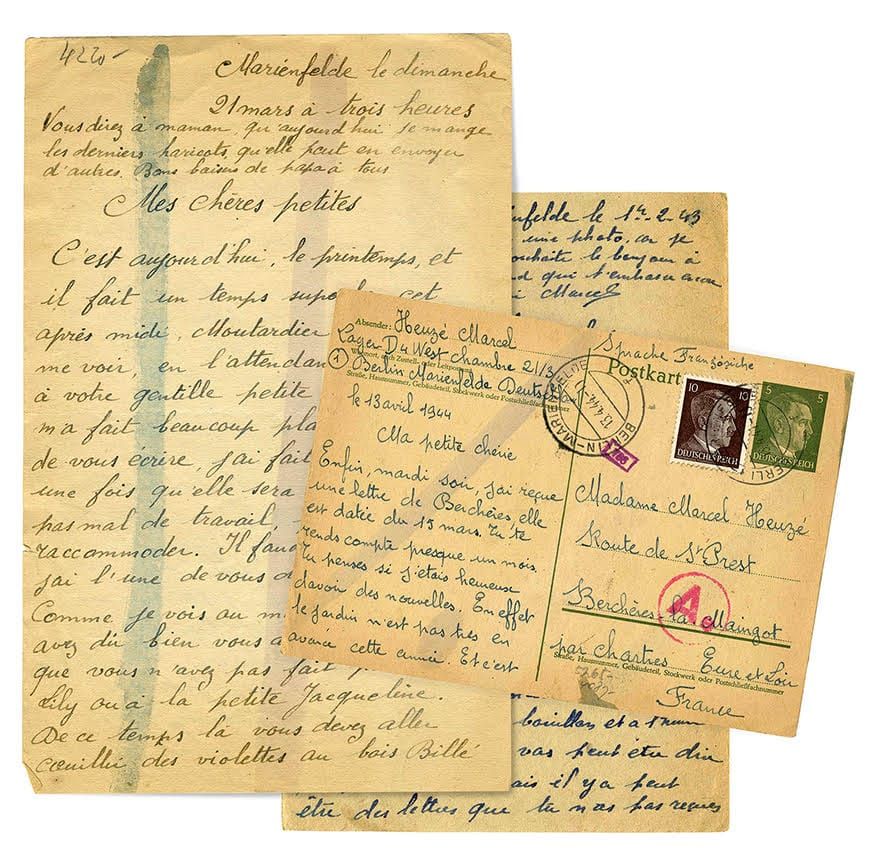 4220-
Marienfelde le dimanche
21 mars à trois heures
Vous direz à maman, qu'aujourd'hui je mange
les derniers haricots, qu'elle peut en envoyer
d'autres. Bons baisers de papa à tous
Mes chères petites
C'est aujourd'hui, le printemps, et
il fait un temps cet
après midi, Moutardier
me voir, en l'attendan
à votre gentille petite
m'a fait beaucoup pla
de vous écrire, j'ai fait
une fois qu'elle sera
pas mal de travail,
raccommoder. Il fau
j'ai l'une de vous
Comme je vois au m
avez dû bien vous a
que vous n'avez pas fait
Lily ou à la petite Jacqueline.
De ce temps là vous devez aller
cœuillir des violettes au bois Billé
nfelde le 1er-2-43
une photo, car je
ouhaite le bonjour à
d qui t'embrasse
Marcel
Absender: Heuzé Marcel
Lager D4 West chambre 21/3
Wohnort, auch Zustell- oder Leitpostamt
1 Berlin Marienfelde Deutschland
Straße, Hausnummer, Gebäudeteil, Stockwerk oder Postschließfachnummer
le 13 avril 1944
Ma petite chérie
Enfin, mardi soir, j'ai reçue
une lettre de Berchères, elle
est datée du 15 mars. Tu te
rends compte presque un mois.
Tu penses si j'étais heureux
d'avoir des nouvelles. En effet
le jardin n'est pas très en
avance cette année. Et c'est
Sprache Französiche
Postkart
BERLIN-MARIENFELDE
10
DEUTSCHES REICH
5
5
DEUTSCHES REICH
Madame Marcel Heuzé
Route de St Prest
Berchères-la Maingot
A
par Chartres Eure et Loir
Straße, Hausnummer, Gebäudeteil, Stockwerk oder Postschließfachnummer
France
bouillon et a
vas peut être dir
ais il y a peut
être des lettres que tu n'as pas reçues